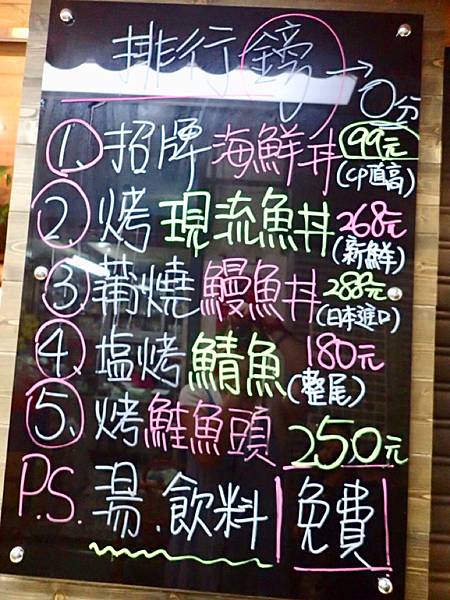 排行鎊→0分
1、招牌海鮮丼 99元
(cp直高)
2、烤現流魚丼 268元
(新鮮)
3、蒲燒鰻魚丼 288元
(日本進口)
4、塩烤鯖魚 180元
(整尾)
5、烤鮭魚頭 250元
P.S.湯、飲料 免費